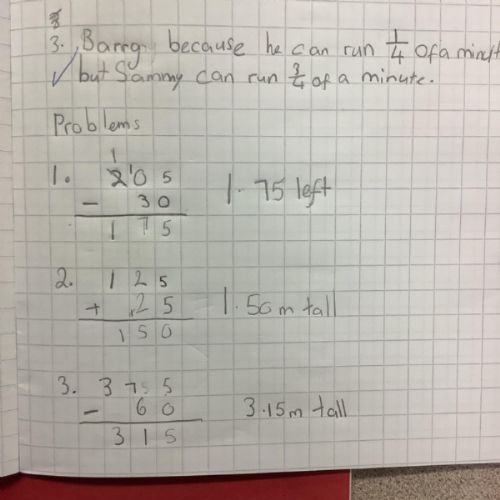 3. Barry, because he can run 1/4 of a minute
but Sammy can run 3/4 of a minute.
Problems
1. 205
- 30
175
1.75 left
2. 125
+ 25
150
1.50 m tall
3. 375
- 60
315
3.15m tall